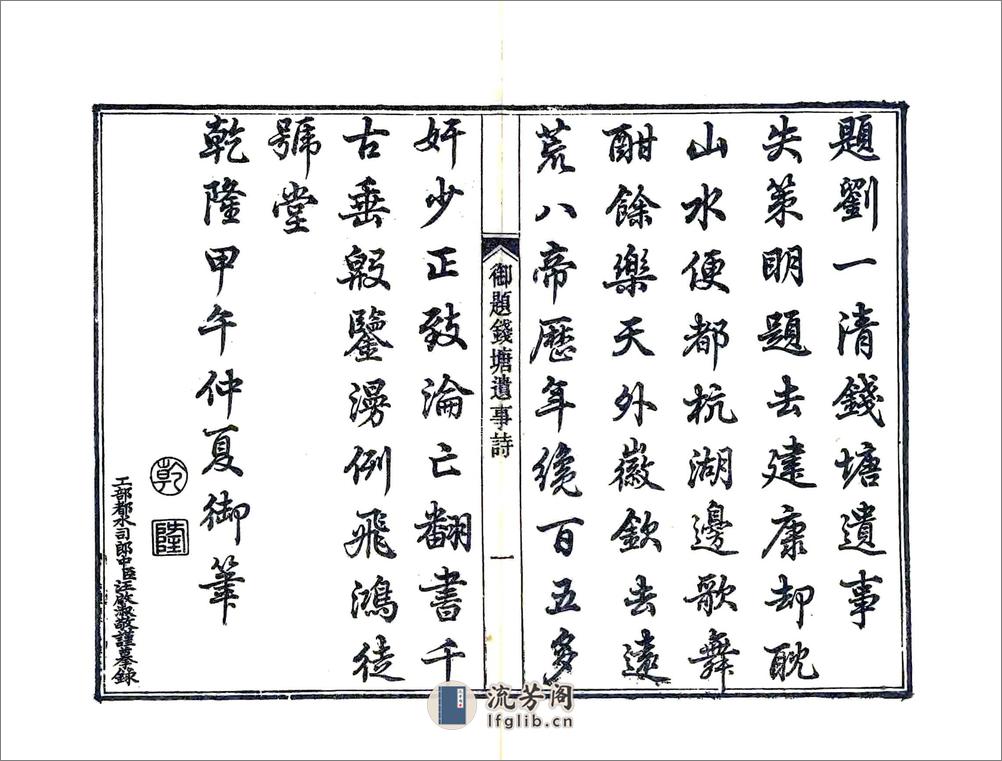 題劉一清錢塘遺事
失策明題去建康却耽
山水便都杭湖邊歌舞
酣餘樂天外徽欽去遠
荒八帝歷年纔百五多
奸少正致淪亡翻書千
古垂殷鑒漫例飛鴻徒
號堂
乾隆甲午仲夏御筆
乾
隆
工部都水司郎中臣汪啟淑敬謹摹錄
御題錢塘遺事詩
一
流芳阁
lfglib.cn